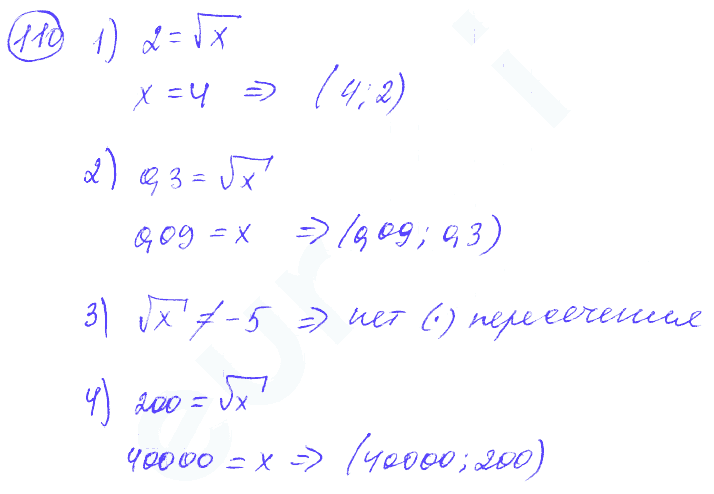 110 1) 2 = √x
x = 4 ⇒ (4; 2)
2) 0,3 = √x
0,09 = x ⇒ (0,09; 0,3)
3) √x ≠ -5 ⇒ нет (·) пересечения
4) 200 = √x
40000 = x ⇒ (40000; 200)